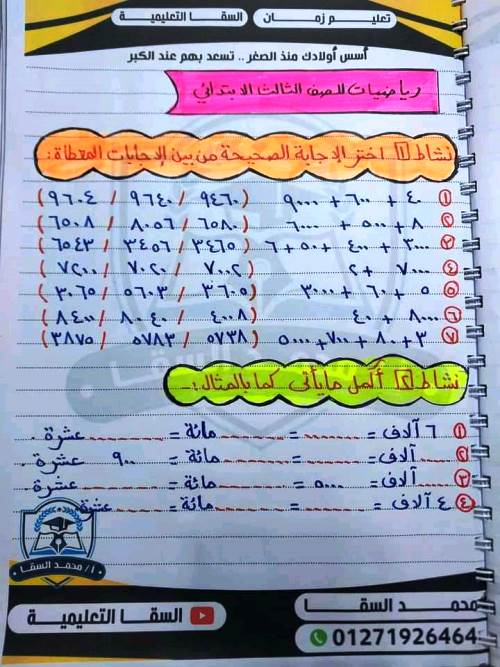 تعليم زمان
السقا التعليمية
أسس أولادك منذ الصغر .. تسعد بهم عند الكبر
رياضيات للصف الثالث الابتدائي
نشاط ١ اختر الإجابة الصحيحة من بين الإجابات المعطاة :
١ ٤٠ + ٦٠٠ + ٩٠٠٠ ( ٩٤٦٠ / ٩٦٤٠ / ٩٦٠٤ )
٢ ٨ + ٥٠٠ + ٦٠٠٠ ( ٦٥٨٠ / ٨٠٥٦ / ٦٥٠٨ )
٣ ٣٠٠٠ + ٤٠٠ + ٥٠ + ٦ ( ٣٤٦٥ / ٣٤٥٦ / ٦٥٤٣ )
٤ ٧٠٠٠ + ٢ ( ٧٠٠٢ / ٧٠٢٠ / ٧٢٠٠ )
٥ ٥ + ٦٠ + ٣٠٠٠ ( ٣٦٠٥ / ٥٦٠٣ / ٣٠٦٥ )
٦ ٨٠٠٠ + ٤٠ ( ٤٠٠٨ / ٨٠٤٠ / ٨٤٠٠ )
٧ ٣ + ٨٠ + ٧٠٠ + ٥٠٠٠ ( ٥٧٣٨ / ٥٧٨٣ / ٣٨٧٥ )
نشاط ٢ أكمل ما يأتى كما بالمثال :
١ ٦ آلاف = ........ = ........ مائة = ........ عشرة .
٢ ........ آلاف = ........ = ........ مائة = ٩٠٠ عشرة .
٣ ........ آلاف = ٥٠٠٠ = ........ مائة = ........ عشرة .
٤ ٤ آلاف = ........ = ........ مائة = ........ عشرة .
أ / محمد السقا
محمد السقا
01271926464
السقا التعليمية